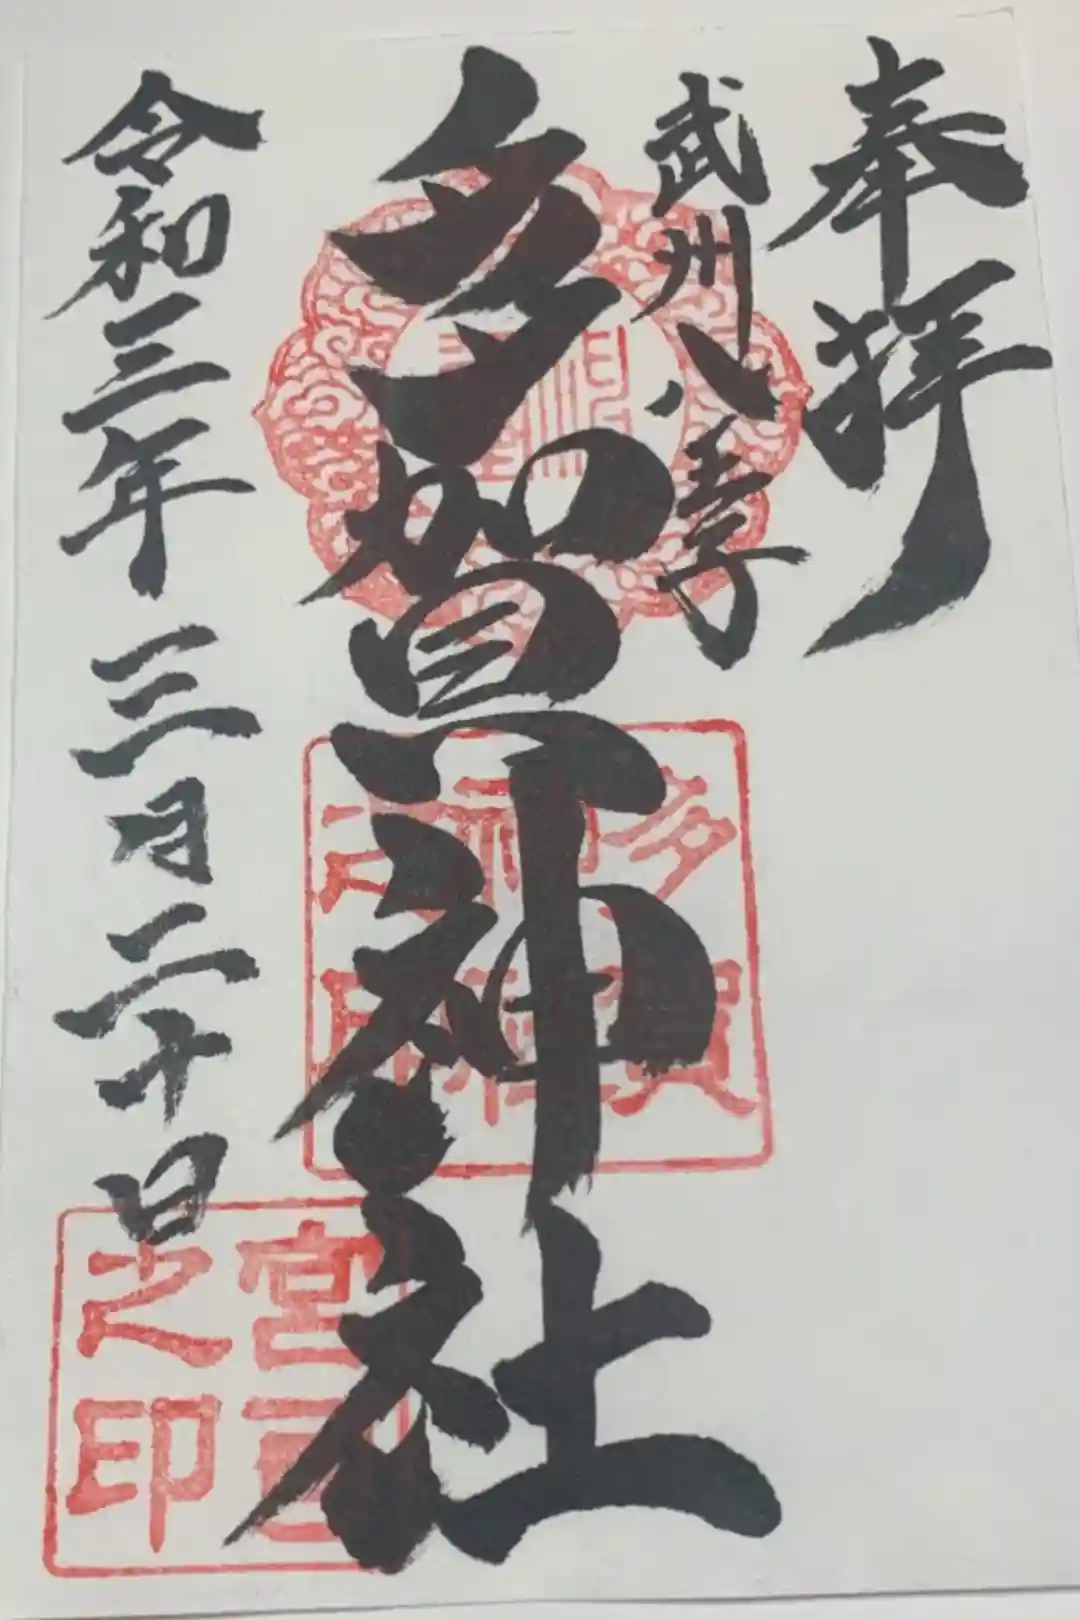 奉拝
武州八王子
多賀神社
令和三年三月二十日
多賀
神社
之印
宮司
之印